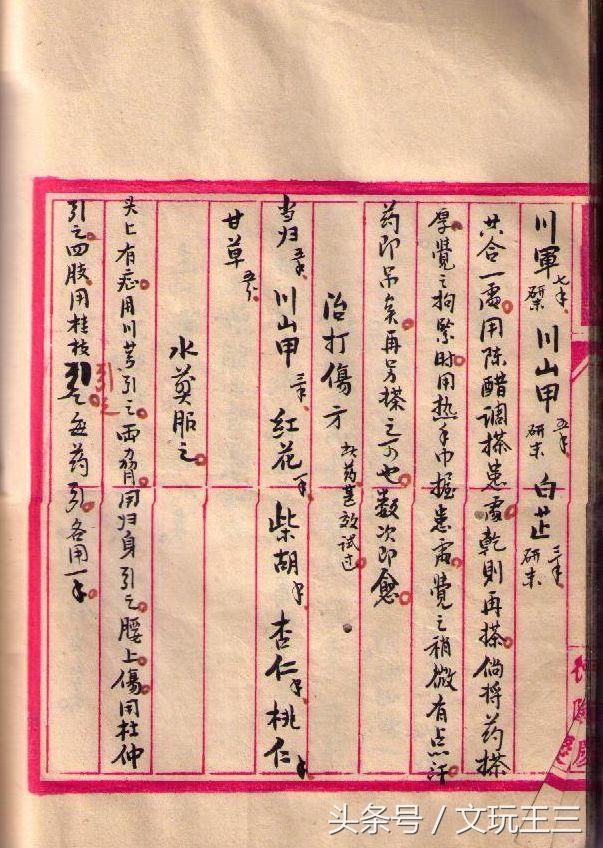 川軍 七钱 研末 川山甲 五钱 研末 白芷 三钱 研末
共合一處用陈醋调搽患處乾則再搽倘将药搽
厚覺之拘緊时用热手巾握患處覺之稍微有点汗
药即吊矣再另搽之可也数次即愈
治打傷方 此药甚效试过
当归 川山甲 红花 柴胡 杏仁 桃仁
甘草
水煎服之
头上有症用川芎引之两膀用归身引之腰上傷用杜仲
引之四肢用桂枝引之每药引各用一钱
头条号 / 文玩王三